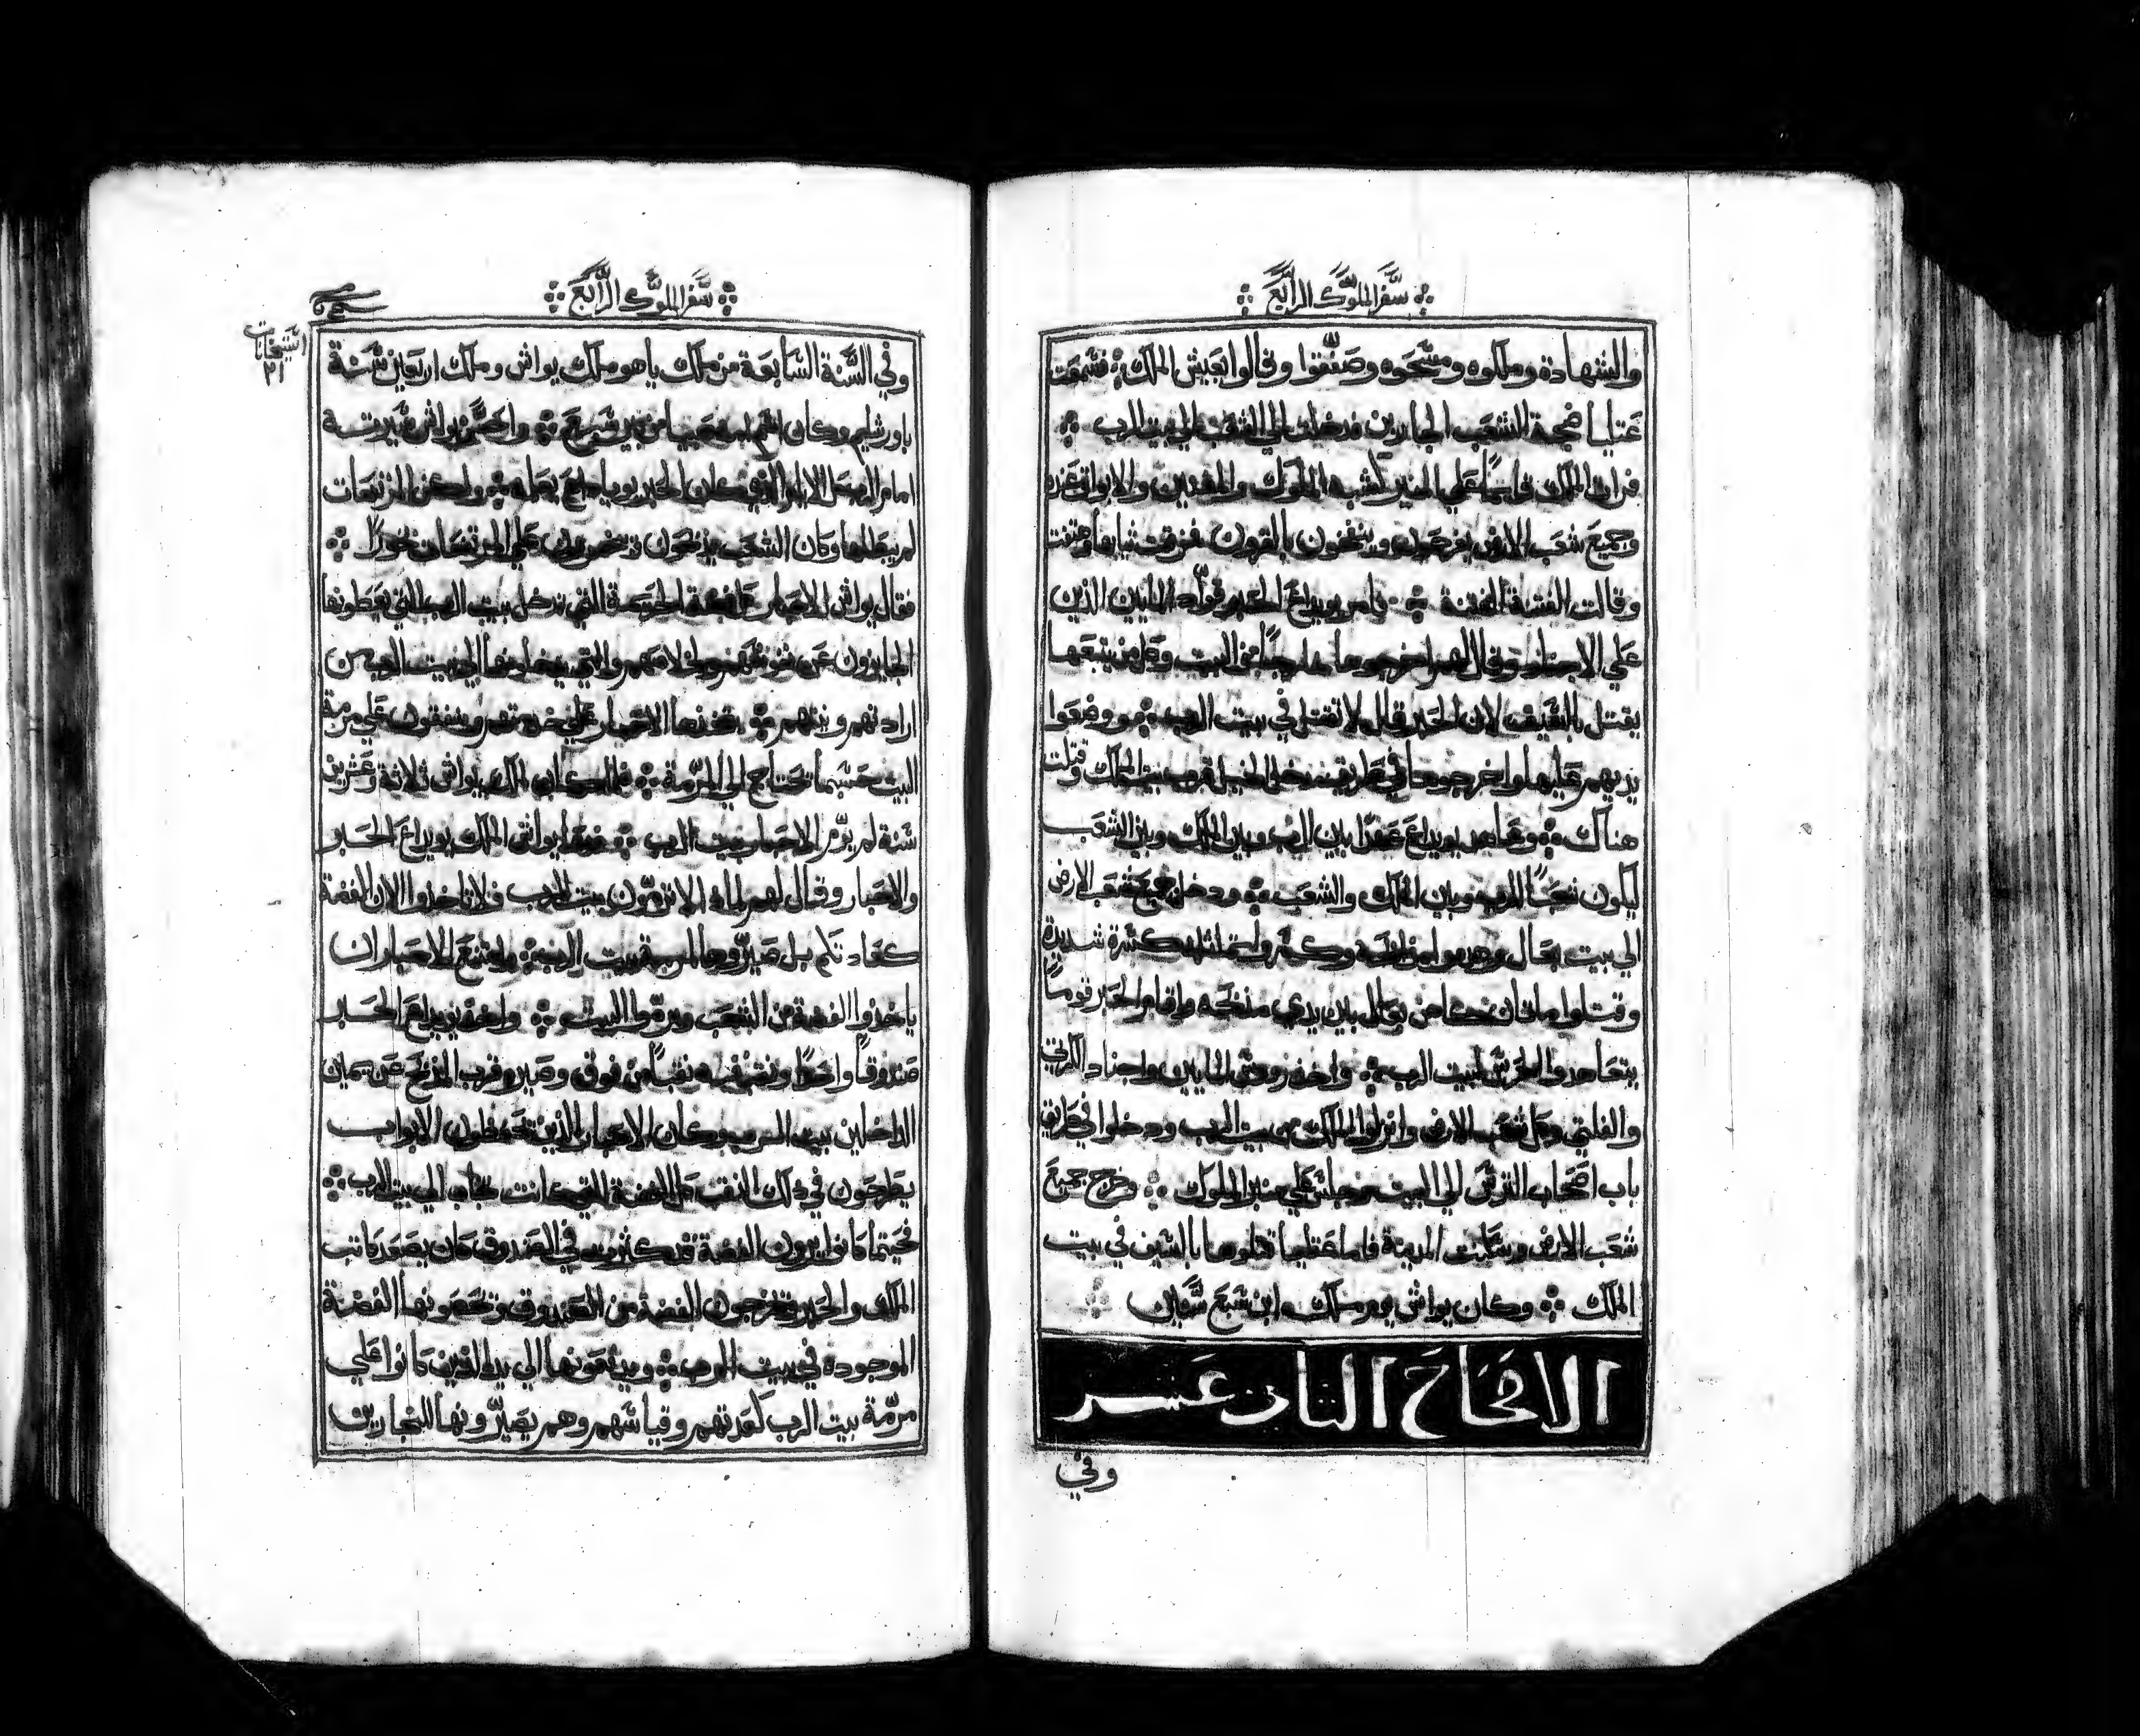 سفر الملوك الرابع
والشهادة وملكوه ومسحوه وصفقوا وقالوا يعيش الملك فسمعت
عتليا ضجة الشعب الجايرين فدخلت الي الشعب الي بيت الرب
فرات الملك قايمًا علي المنبر كشبه الملوك والمغنيين والابواق عنده
وجميع شعب الارض يفرحون وينفخون بالقرون فمزقت ثيابها وهتفت
وقالت الفتنة الفتنة وامر يويداع الحبر قواد المايين الذين
علي الاجناد وقال لهم اخرجوها خارجًا من البيت وكل من يتبعها
يقتل بالسيف لان الحبر قال لا تقتل في بيت الرب ووضعوا
يديهم عليها واخرجوها في طريق مدخل الخيل قرب بيت الملك وقتلت
هناك وعاهد يويداع عهدًا بين الرب وبين الملك وبين الشعب
ليكون شعبًا للرب وبين الملك والشعب ودخل جميع شعب الارض
الي بيت بعال وهدموا مذابحه وكسروا تماثيله كسرة شديدة
وقتلوا ماتان كاهن بعال بين يدي مذبحه واقام الحبر قومًا
يتعاهدوا الحرس لبيت الرب واخذ روسا المايين واجناد الكرتي
والفلتي وكل شعب الارض وانزلوا الملك من بيت الرب ودخلوا في طريق
باب اصحاب الترس الي البيت وجلس علي منبر الملوك وفرح جميع
شعب الارض وسكنت المدينة فاما عتليا قتلوها بالسيف في بيت
الملك وكان يواش يوم ملك ابن سبع سنين
الاصحاح الثاني عشر
وفي
سفر الملوك الرابع
وفي السنة السابعة من ملك ياهو ملك يواش وملك اربعين سنة
باورشليم وكان اسم امه صبيا من بير سبع واحسن يواش سيرته
امام الرب كل الايام الذي كان الحبر يوياداع يعلمه ولكن المرتفعات
لم يبطلها وكان الشعب يذبحون ويبخرون علي المرتفعات بخورًا
فقال يواش للاحبار فضة الخرمة التي تدخل بيت الرب التي يعطونها
الجايزون عن نفوسهم والتي يدخلونها الي بيت الرب من
ارادتهم ونيتهم ياخذها الاحبار علي خدمتهم وينفقون علي مرمة
البيت حسبما تحتاج الي المرمة فلما كان الملك يواش ثلاثة وعشرين
سنة لم يرم الاحبار بيت الرب فدعا يواش الملك يويداع الحبر
والاحبار وقال لهم لماذا لا ترمون بيت الرب فلا تاخذوا الان الفضة
كعادتكم بل صيروها لمرمة بيت الرب وامتنع الاحبار ان
ياخذوا الفضة من الشعب ويرموا البيت واخذ يويداع الحبر
صندوقًا واحدًا ونقب فيه نقبًا من فوق وصيره قرب المذبح عن يمين
الداخلين بيت الرب وكان الاحبار الذين يحفظون الابواب
يطرحون في ذلك النقب كل الفضة التي كانت تجاب الي بيت الرب
فحيثما كانوا يرون الفضة قد كثرت في الصندوق كان يصعد كاتب
الملك والحبر ويخرجون الفضة من الصندوق ويحصونها الفضة
الموجودة في بيت الرب ويدفعونها الي يد الذين كانوا علي
مرمة بيت الرب كعدتهم وقياسهم وهم يصيرونها للنجارين